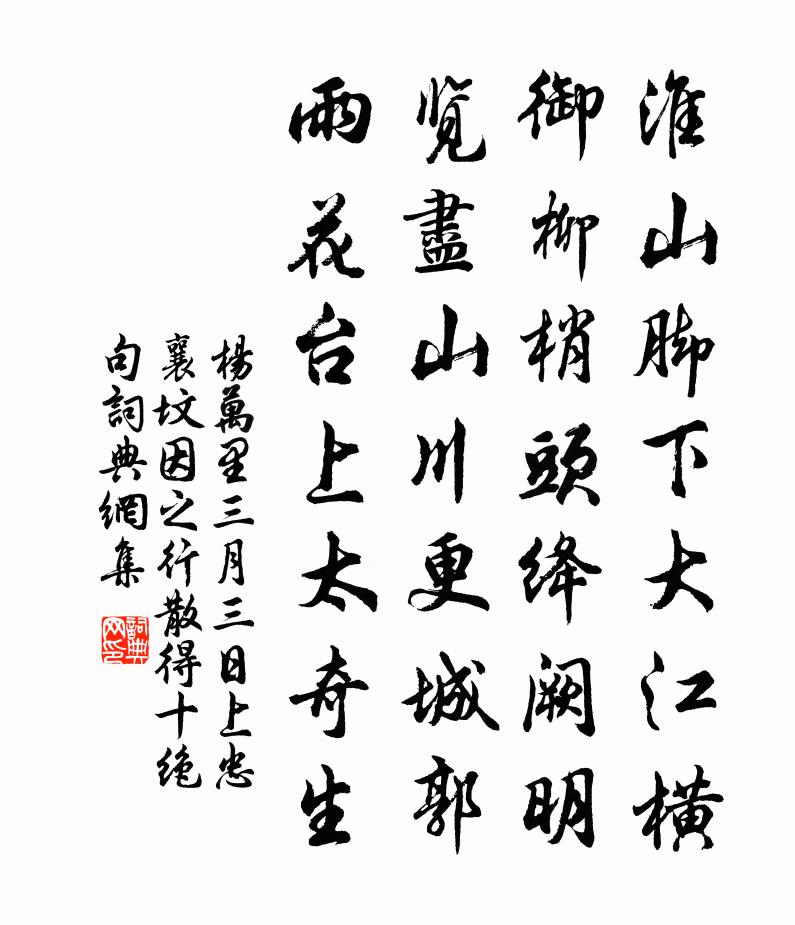 淮山脚下大江橫
御柳梢頭絳闕明
覽盡山川更城郭
雨花台上太奇生
楊萬里三月三日上忠
襄墳因之行散得十絶
句詞典網集
詞典
网印